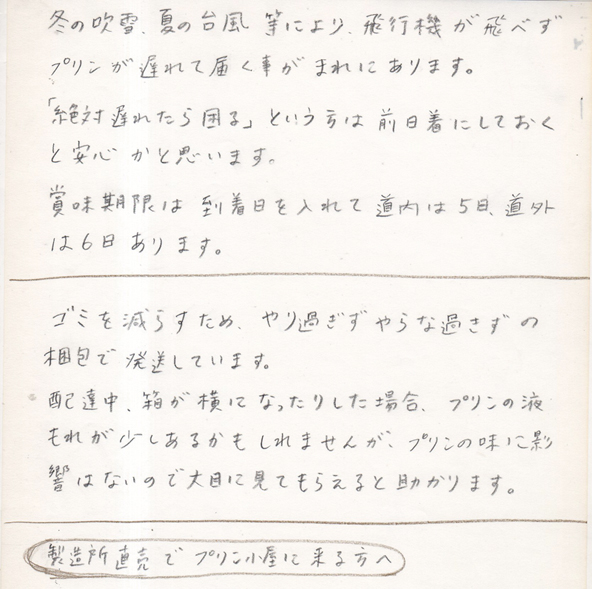 冬の吹雪、夏の台風 等により、飛行機が飛べず
プリンが遅れて届く事がまれにあります。
「絶対遅れたら困る」という方は前日着にしておく
と安心かと思います。
賞味期限は到着日を入れて道内は5日、道外
は6日あります。
ゴミを減らすため、やり過ぎずやらな過ぎずの
梱包で発送しています。
配達中、箱が横になったりした場合、プリンの液
もれが少しあるかもしれませんが、プリンの味に影
響はないので大目に見てもらえると助かります。
製造所直売でプリン小屋に来る方へ